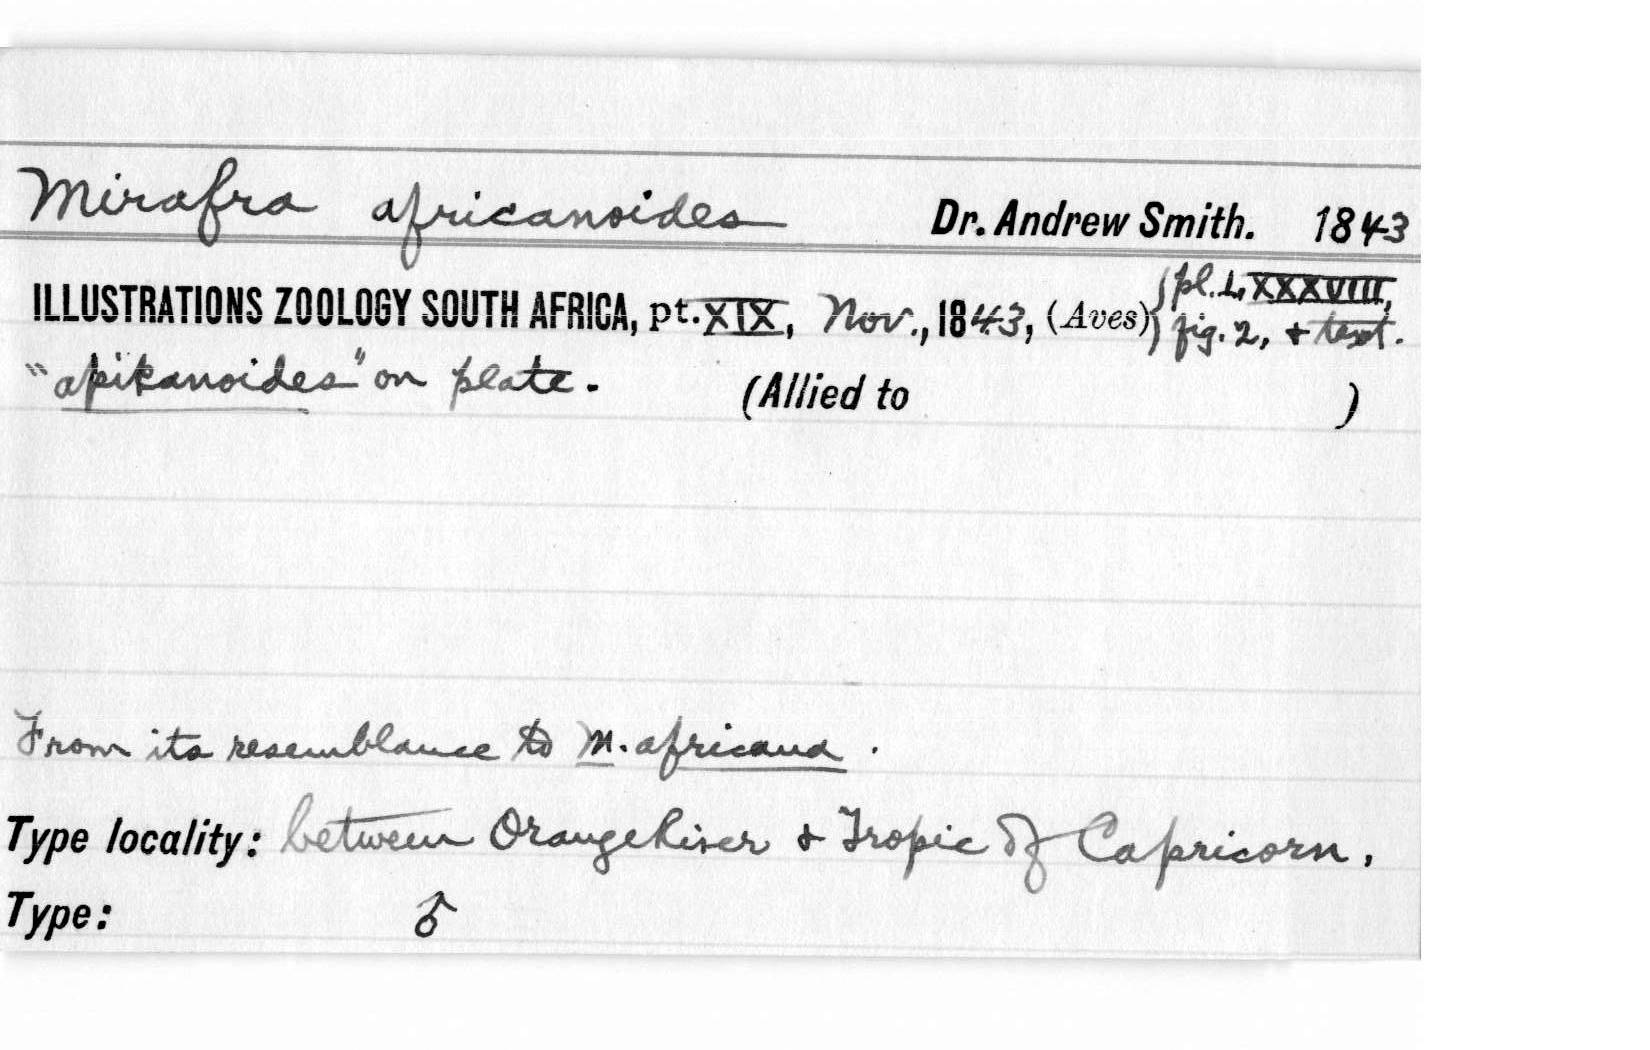 Mirafra africanoides Dr. Andrew Smith. 1843
ILLUSTRATIONS ZOOLOGY SOUTH AFRICA, pt. XIX, Nov., 1843, (Aves) { pl. LXXXVIII,
fig. 2, & text.
"apikanoides" on plate. (Allied to )
From its resemblance to M. africana.
Type locality: between Orange River & Tropic of Capricorn.
Type: ♂